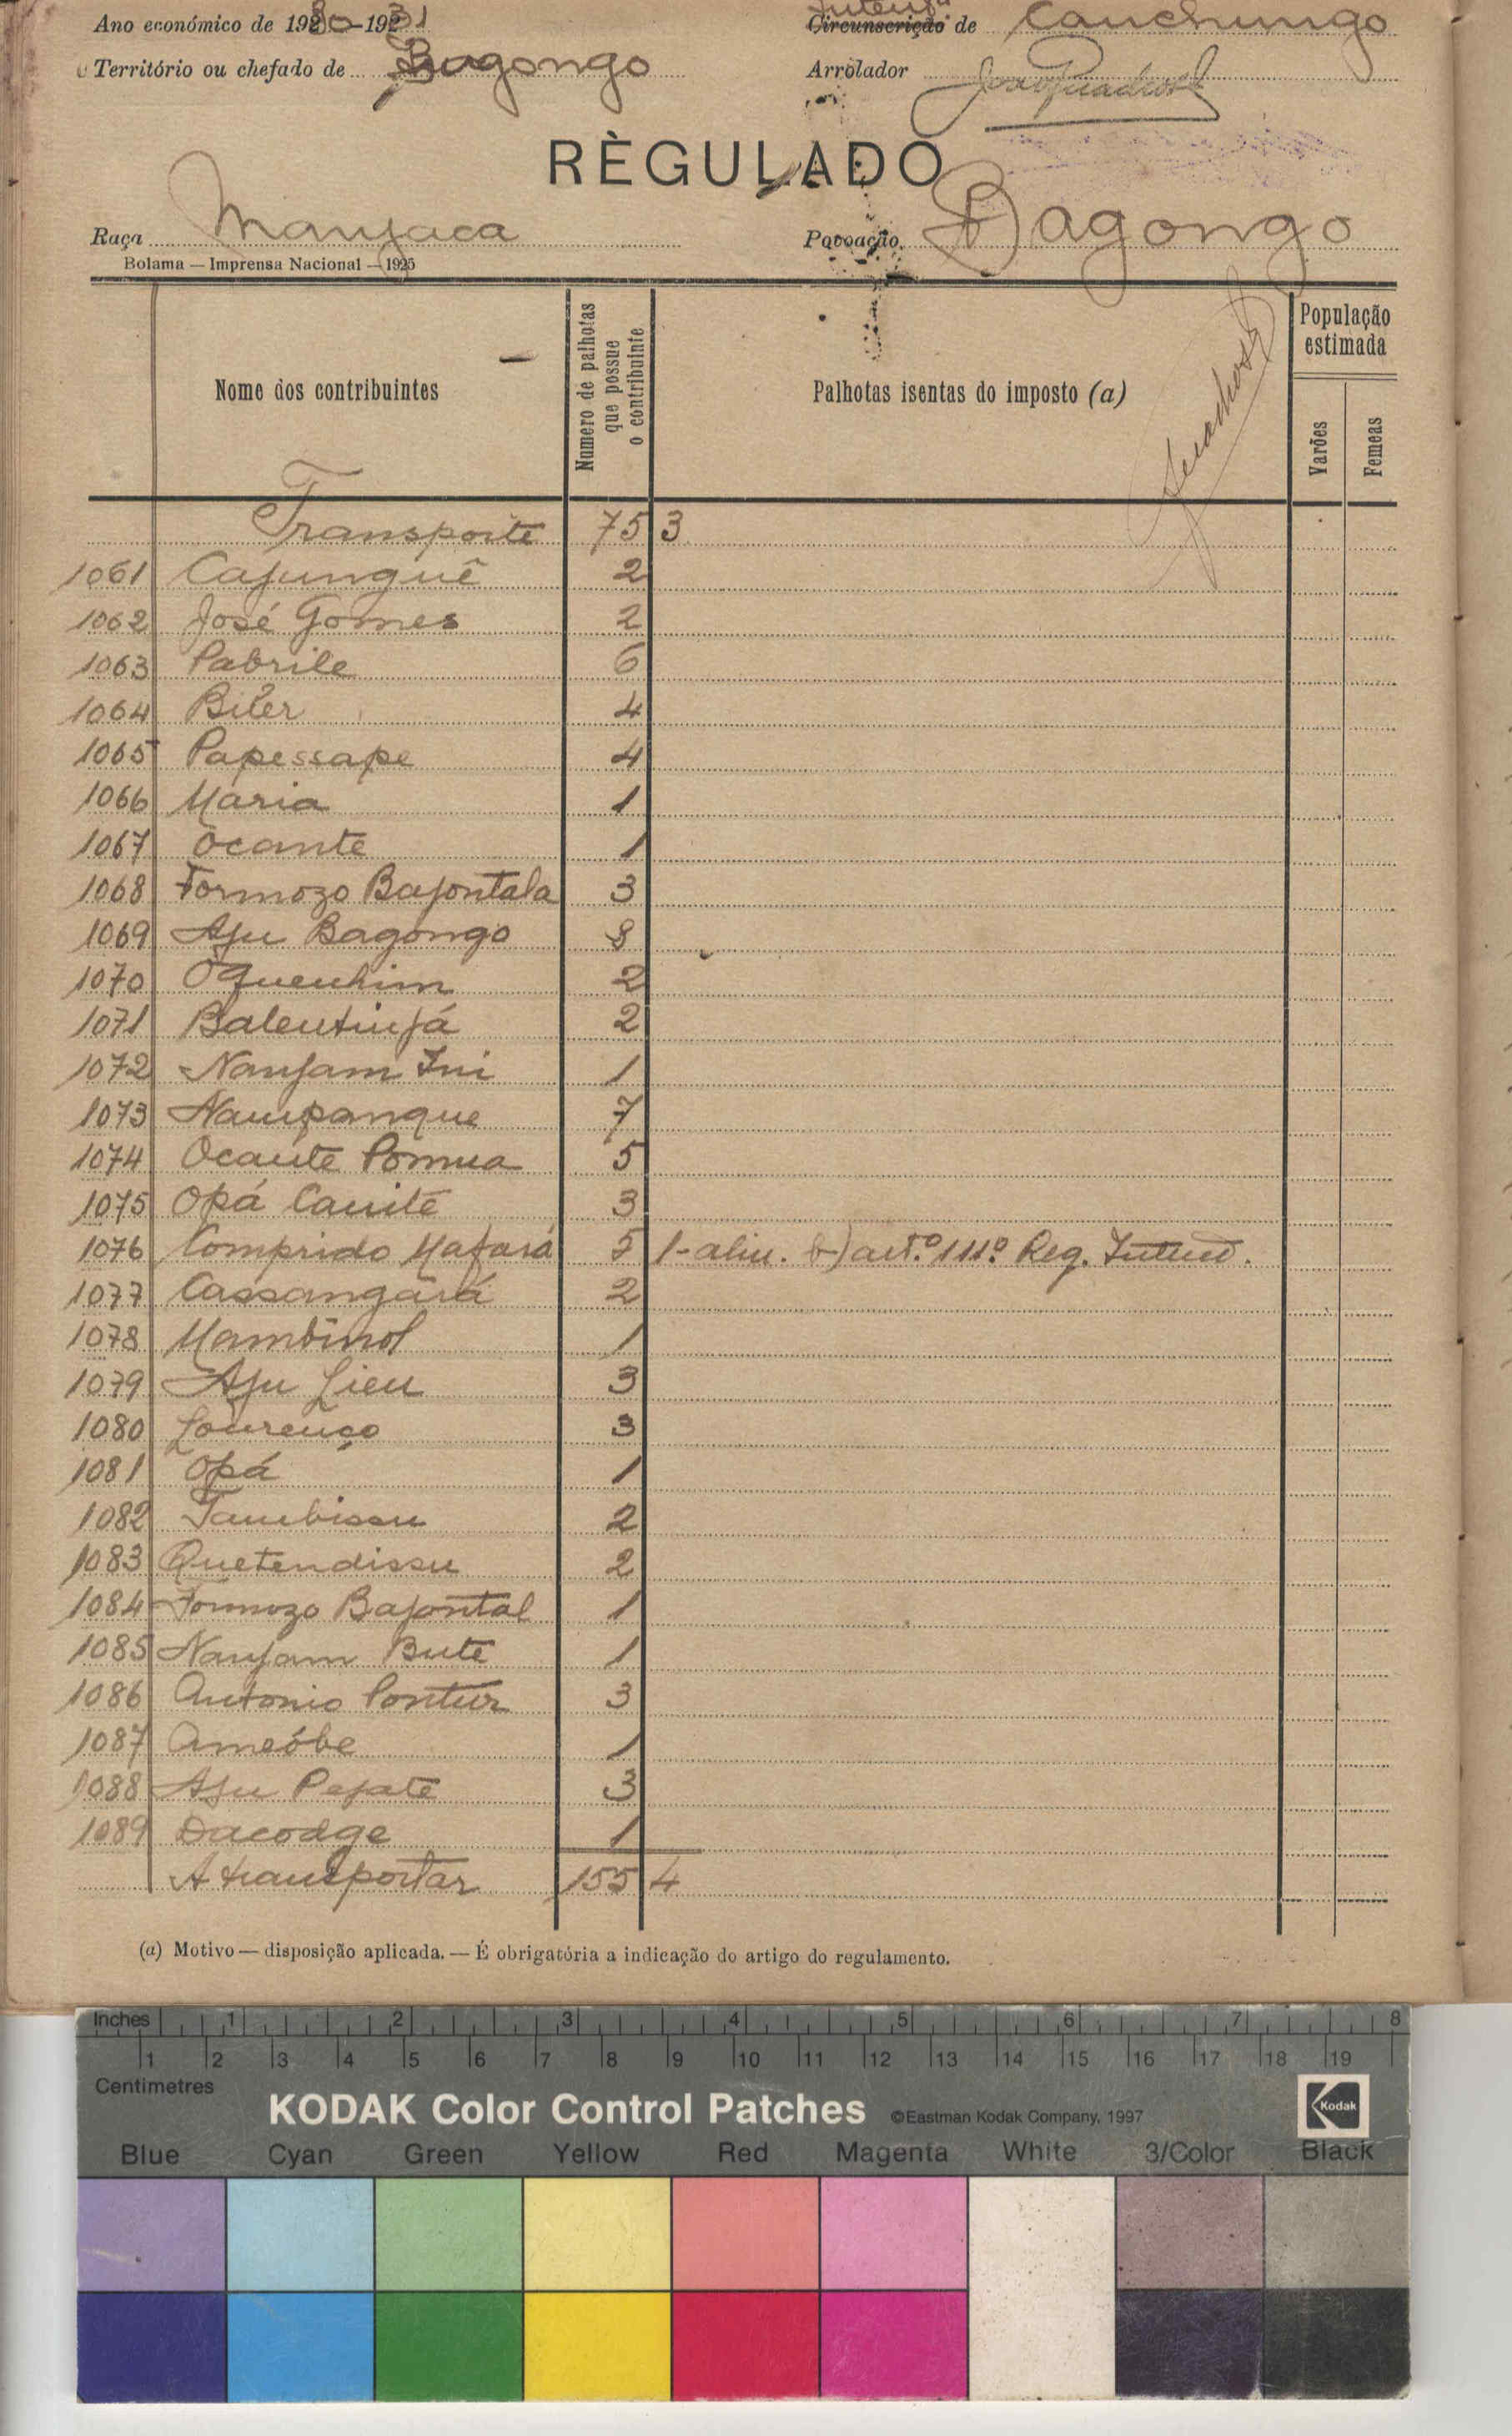 Ano económico de 1930-1931
Intend.ª
Circunscrição de Canchungo
Território ou chefado de Bagongo
Arrolador
RÈGULADO
Raça Manjaca
Povoação Bagongo
Bolama — Imprensa Nacional — 1925
Nome dos contribuintes
Numero de palhotas que possue o contribuinte
Palhotas isentas do imposto (a)
População estimada
Varões
Femeas
Transporte 75 3
1061 Cajunguê 2
1062 José Gomes 2
1063 Pabrile 6
1064 Biter 4
1065 Papessape 4
1066 Maria 1
1067 Ocante 1
1068 Formozo Bajontala 3
1069 Aju Bagongo 8
1070 Oquenhim 2
1071 Balentinjá 2
1072 Nanjam Ini 1
1073 Nampanque 7
1074 Ocante Pomua 5
1075 Opá Canité 3
1076 Comprido Mafará 5 1-alin. b) art.º 111º Reg. Intend.
1077 Cassangará 2
1078 Mambinol 1
1079 Aju Lieu 3
1080 Lourenço 3
1081 Opá 1
1082 Tambissu 2
1083 Quetendissu 2
1084 Formozo Bajontal 1
1085 Nanjam Bute 1
1086 Antonio Pontur 3
1087 Ameóbe 1
1088 Aju Pejate 3
1089 Dacodge 1
A transportar 155 4
(a) Motivo — disposição aplicada. — É obrigatória a indicação do artigo do regulamento.
Inches 1 2 3 4 5 6 7 8
1 2 3 4 5 6 7 8 9 10 11 12 13 14 15 16 17 18 19
Centimetres
KODAK Color Control Patches ©Eastman Kodak Company, 1997 Kodak
Blue Cyan Green Yellow Red Magenta White 3/Color Black